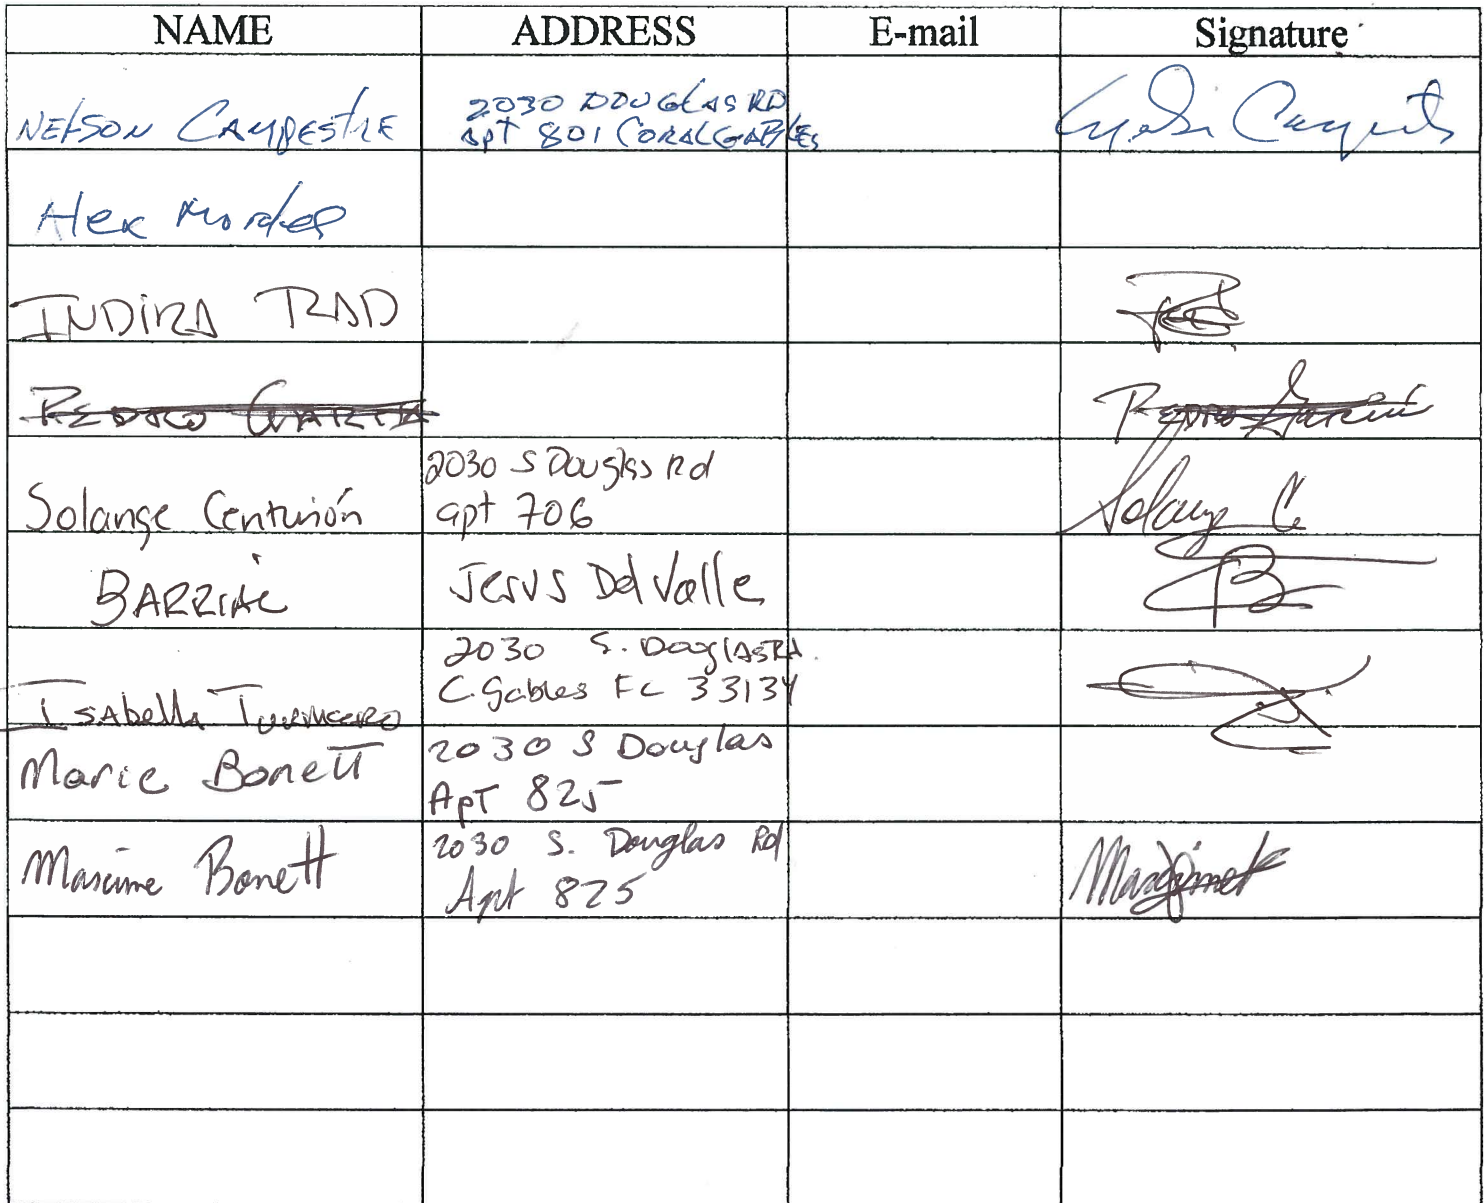 NAME ADDRESS E-mail Signature
NELSON CAMPESTRE 2030 DOUGLAS RD
apt 801 CORAL GABLES
Alex Morales
INDIRA RAD
PEDRO GARCIA Pedro Garcia
2030 S Douglas Rd
Solange Centurión apt 706 Solange C
BARRIAL Jesus Del Valle
2030 S. Douglas Rd.
C. Gables FL 33134
Isabella
Marie Bonett 2030 S Douglas
Apt 825
Maxime Bonett 2030 S. Douglas Rd
Apt 825